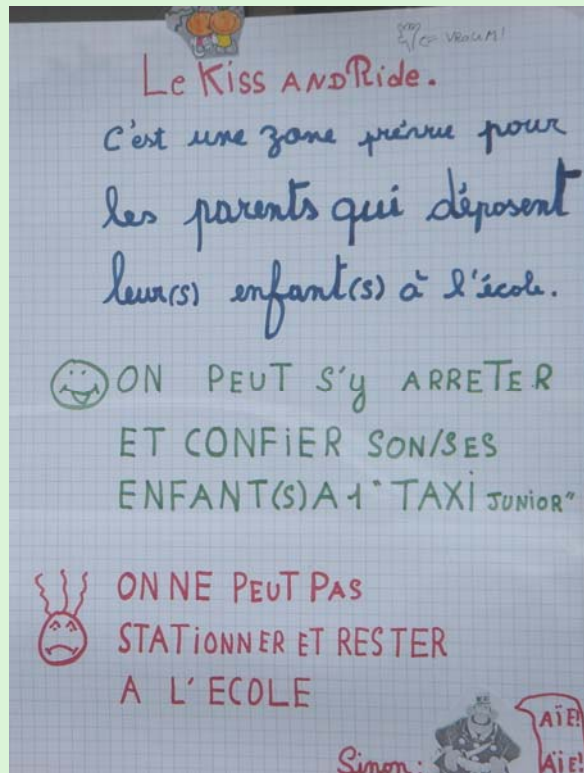 VROUM!
Le Kiss AND Ride.
C'est une zone prévue pour
les parents qui déposent
leur(s) enfant(s) à l'école.
ON PEUT S'y ARRETER
ET CONFIER SON/SES
ENFANT(S) A 1 "TAXI JUNIOR"
ON NE PEUT PAS
STATIONNER ET RESTER
A L'ECOLE
Sinon:
AÏE!
AÏE!